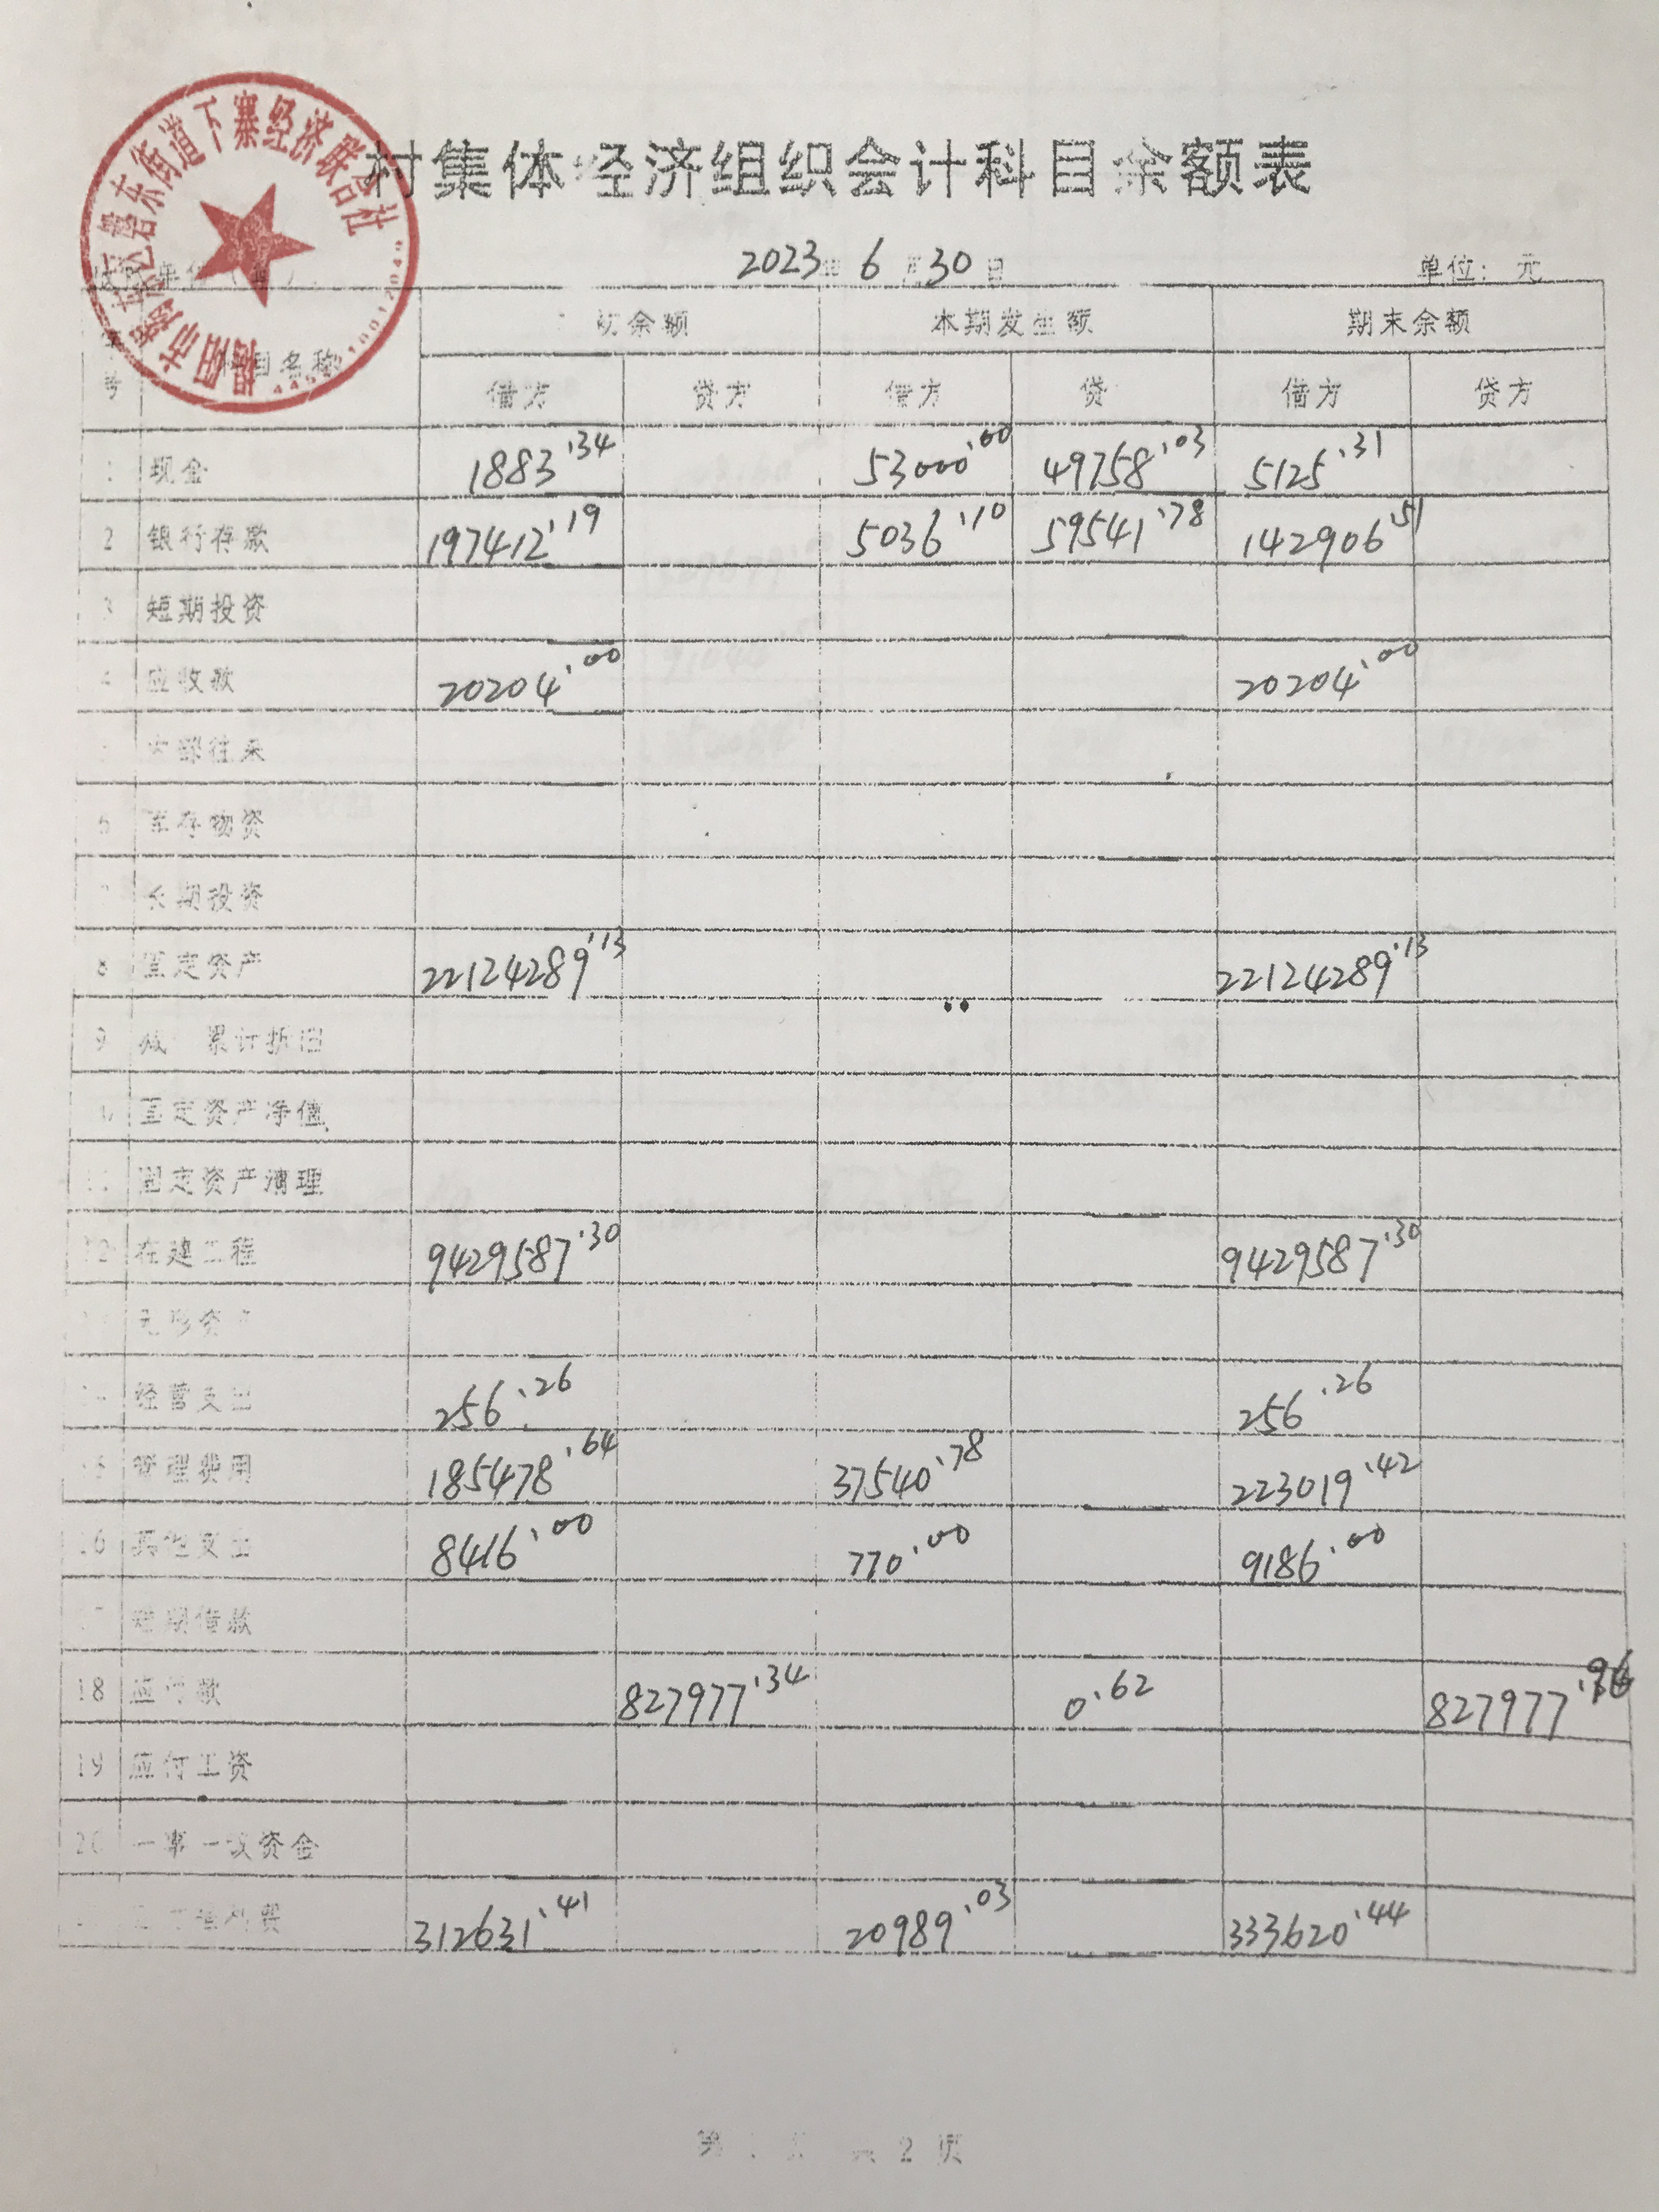 村集体经济组织会计科目余额表
揭阳市蓝城区磐东街道下寨经济联合社
2023年6月30日 单位：元
号 科目名称 初余额 本期发生额 期末余额
借方 贷方 借方 贷 借方 贷方
1 现金 1883.34 53000.00 49758.03 5125.31
2 银行存款 197412.19 5036.10 59541.78 142906.51
3 短期投资
4 应收款 20204.00 20204.00
内部往来
6 库存物资
长期投资
8 固定资产 22124289.13 22124289.13
9 减 累计折旧
固定资产净值
固定资产清理
12 在建工程 9429587.30 9429587.30
无形资产
经营支出 256.26 256.26
15 管理费用 185478.64 37540.78 223019.42
16 其他支出 8416.00 770.00 9186.00
短期借款
18 应付款 827977.34 0.62 827977.96
19 应付工资
20 一事一议资金
312631.41 20989.03 333620.44
第 页 共 2 页